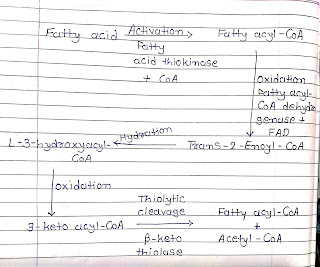 Fatty acid Activation Fatty acyl-CoA
Fatty
acid thiokinase
+ CoA
oxidation
Fatty acyl-
CoA dehydro
genase +
FAD
L-3-hydroxyacyl-
CoA
Hydration
Trans-2-Enoyl-CoA
oxidation
Thiolytic
cleavage
3-keto acyl-CoA
β-keto
thiolase
Fatty acyl-CoA
+
Acetyl-CoA